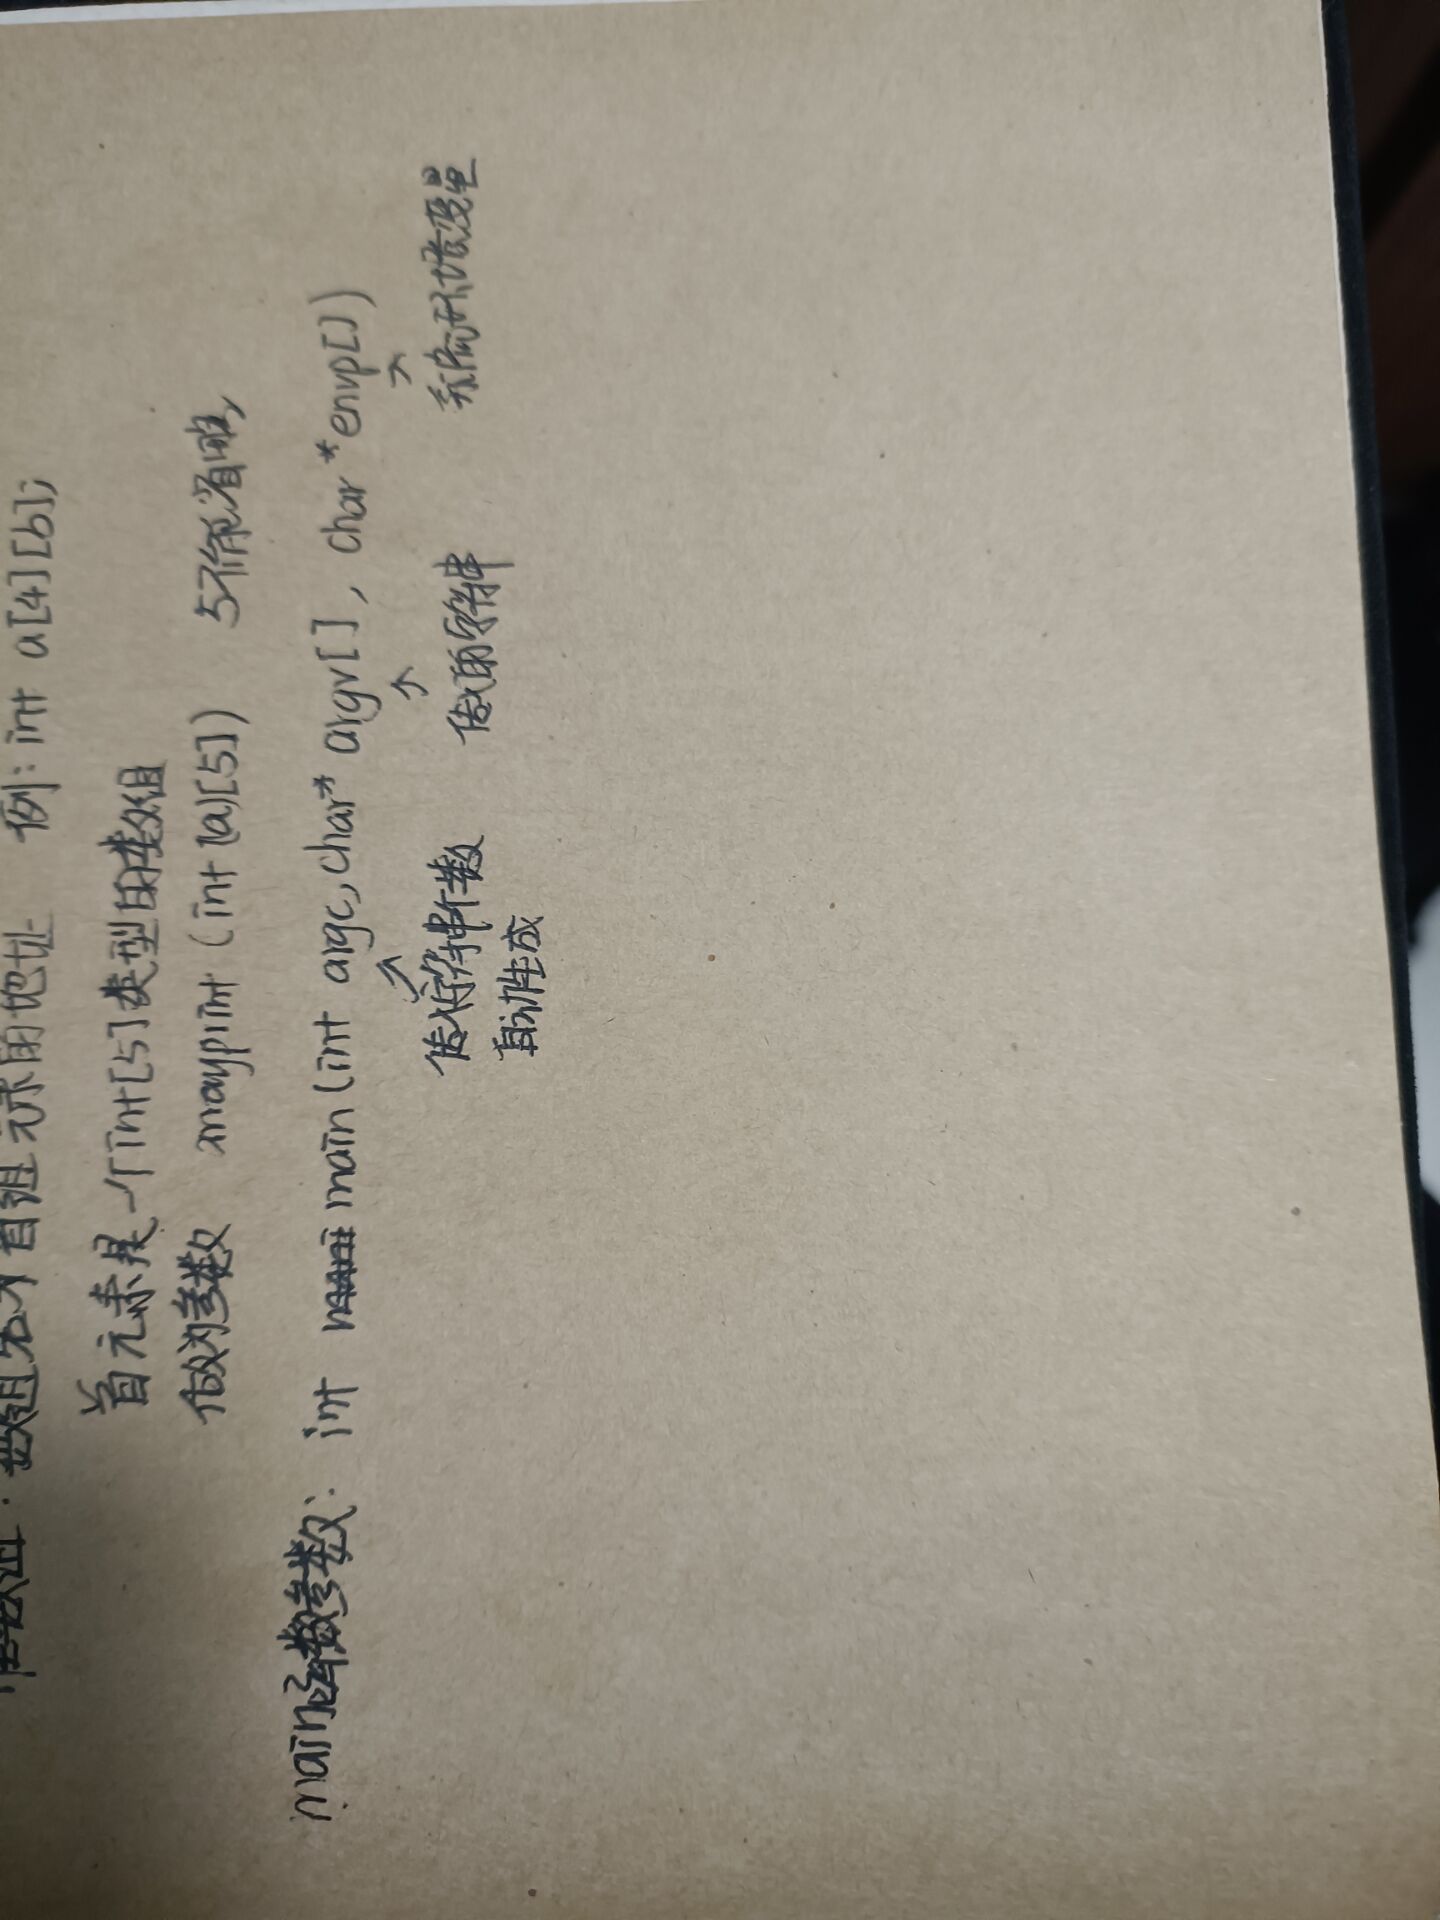 数组: 数组名为首组元素的地址 例: int a[4][b];
首元素是一个int[5]类型的数组
做为参数 arrayprint (int (a)[5]) 5不能省略,
main函数参数: int main (int argc, char* argv[], char *envp[])
↗ ↗ ↗
传入字符串个数 传入的字符串 系统环境变量
自动生成